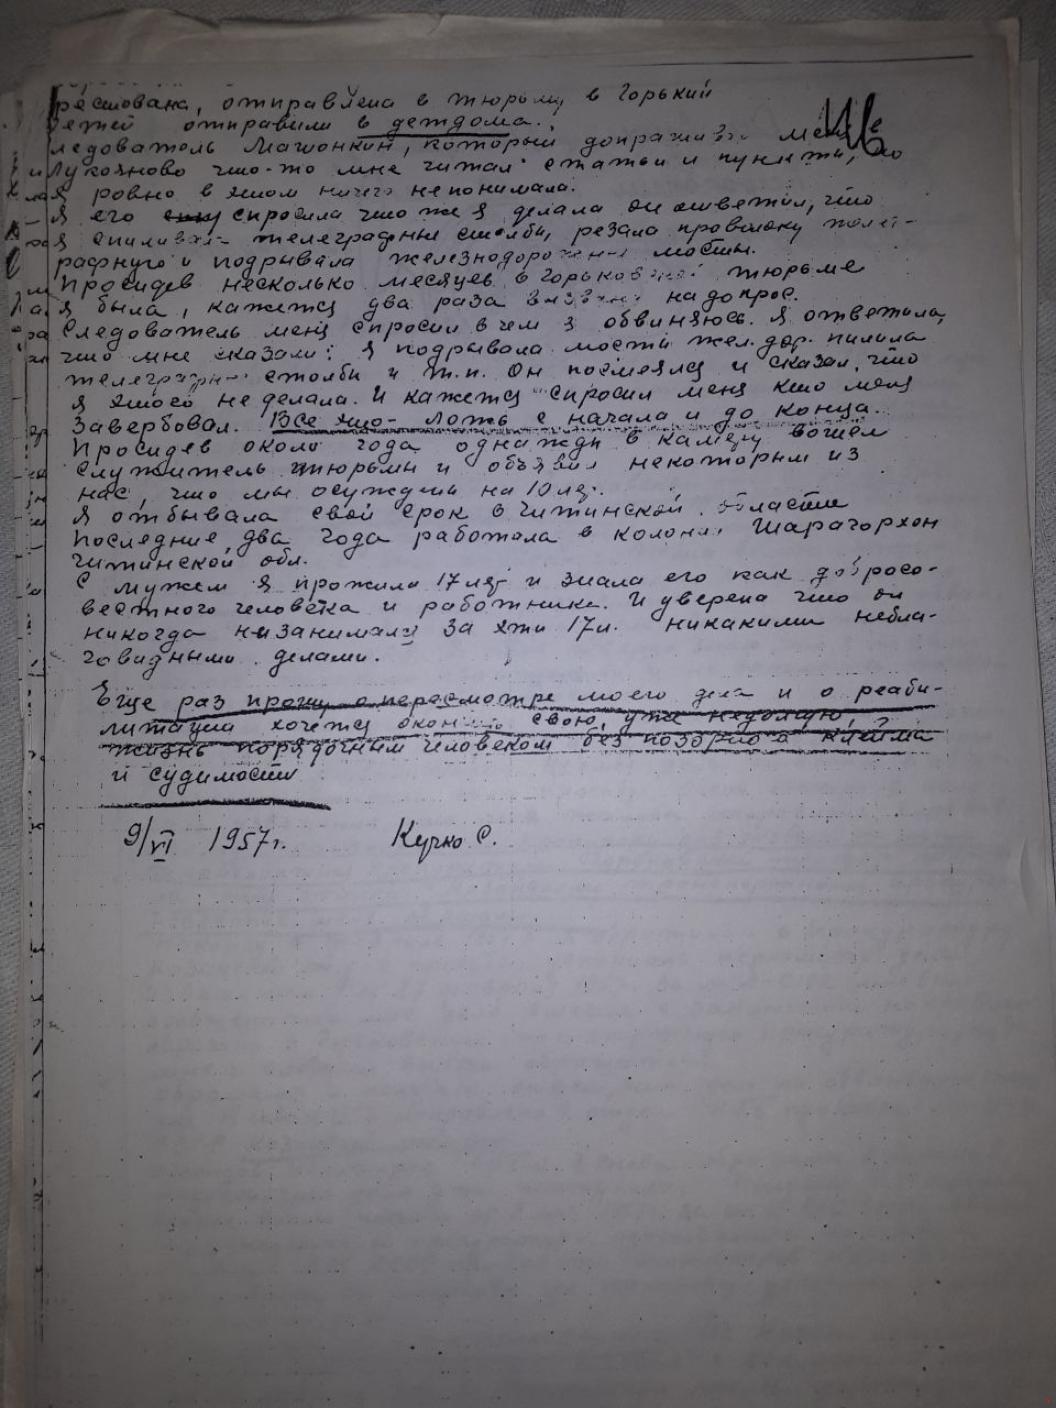 рестована, отправлена в тюрьму в Горький
детей отправили в детдома.
ледователь Машонкин, который допрашивал меня в
Лукояново что-то мне читал статьи и пункты, но
я ровно в этом ничего непонимала.
Я его спросила что же я делала он ответил, что
я спиливала телеграфные столбы, резала проволоку телег-
рафную и подрывала железнодорожные мосты.
Просидев несколько месяцев в Горьковской тюрьме
я была, кажется два раза вызвана на допрос.
Следователь меня спросил в чем я обвиняюсь. Я ответила,
что мне сказали: я подрывала мосты жел. дор. пилила
телеграфные столбы и т.п. Он посмеялся и сказал, что
я этого не делала. И кажется спросил меня кто меня
завербовал. Все это - ложь с начала и до конца.
Просидев около года однажды в камеру вошел
служитель тюрьмы и объявил некоторым из
нас, что мы осуждены на 10 лет.
Я отбывала свой срок в Читинской области
Последние два года работала в колонии Шарагорхон
Читинской обл.
С мужем я прожила 17 лет и знала его как добросо-
вестного человека и работника. И уверена что он
никогда не занимался за эти 17 л. никакими небла-
говидными делами.
Еще раз прошу о пересмотре моего дела и о реаби-
литации хочется окончить свою, уже недолгую,
жизнь порядочным человеком без позорного клейма
и судимости
9/VI 1957 г. Кучко С.